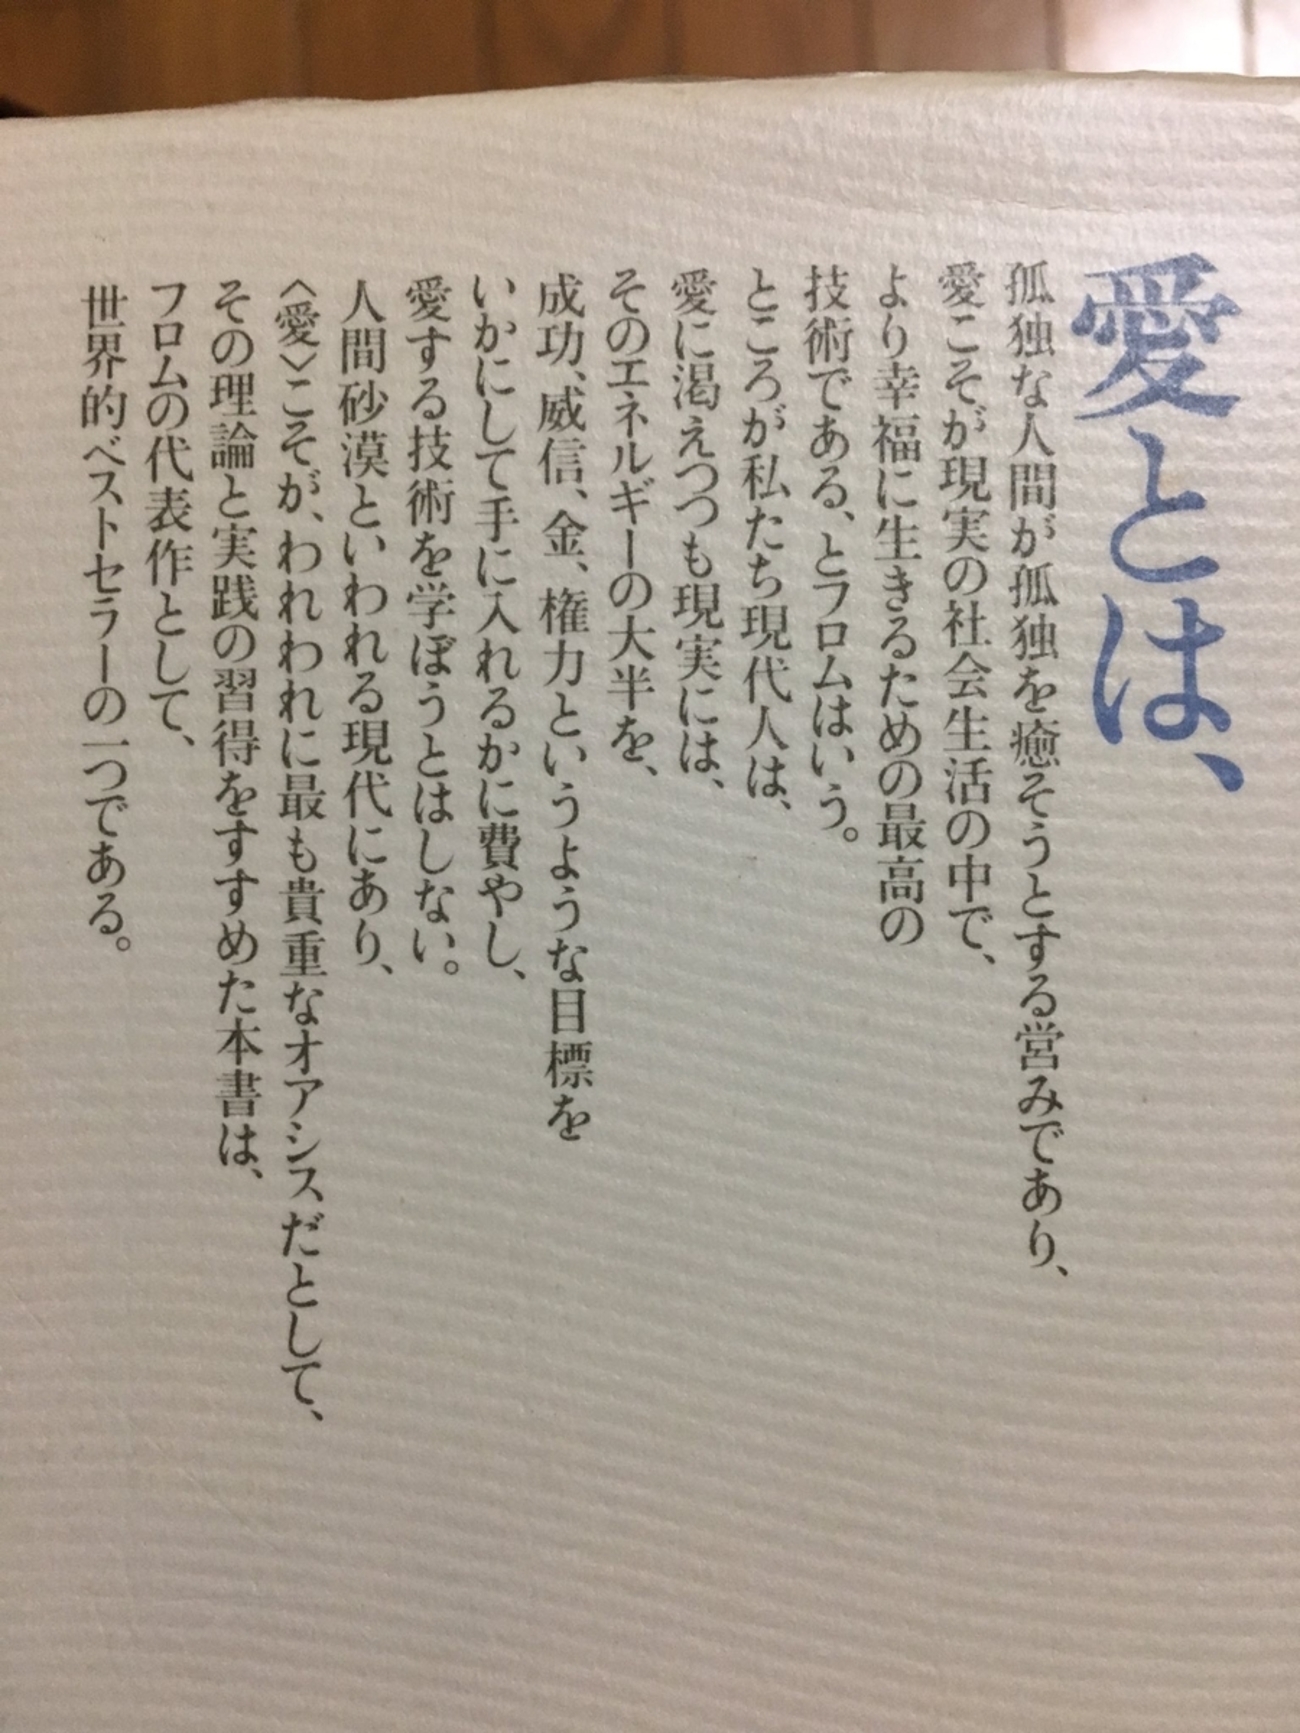 愛とは、
孤独な人間が孤独を癒そうとする営みであり、
愛こそが現実の社会生活の中で、
より幸福に生きるための最高の
技術である、とフロムはいう。
ところが私たち現代人は、
愛に渇えつつも現実には、
そのエネルギーの大半を、
成功、威信、金、権力というような目標を
いかにして手に入れるかに費やし、
愛する技術を学ぼうとはしない。
人間砂漠といわれる現代にあり、
〈愛〉こそが、われわれに最も貴重なオアシスだとして、
その理論と実践の習得をすすめた本書は、
フロムの代表作として、
世界的ベストセラーの一つである。